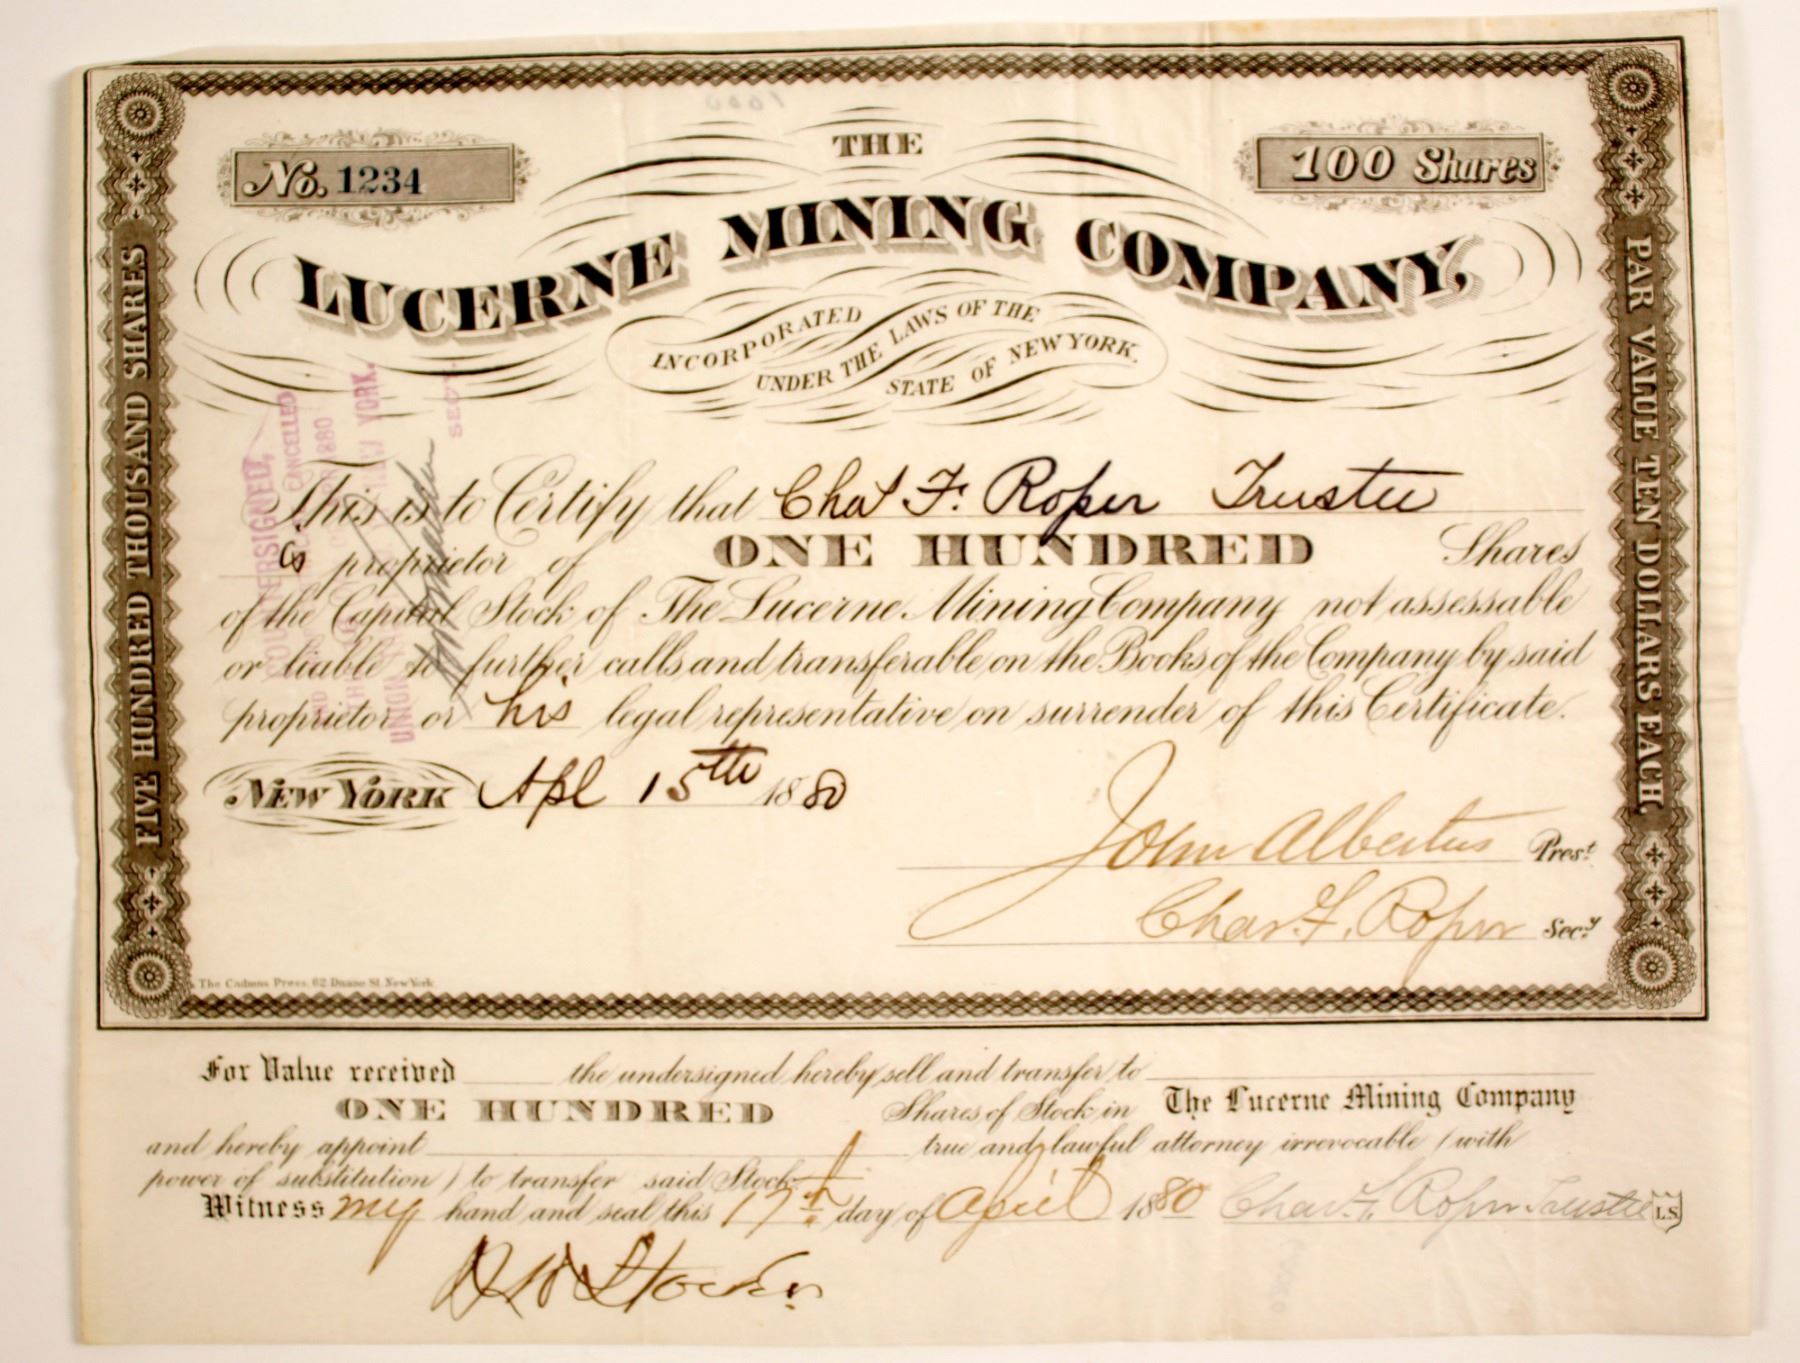 THE
No. 1234
100 Shares
LUCERNE MINING COMPANY,
INCORPORATED
UNDER THE LAWS OF THE
STATE OF NEW YORK.
FIVE HUNDRED THOUSAND SHARES
PAR VALUE TEN DOLLARS EACH
This is to Certify that Chas F. Roper Trustee
is proprietor of ONE HUNDRED Shares
of the Capital Stock of The Lucerne Mining Company not assessable
or liable to further calls and transferable on the Books of the Company by said
proprietor or his legal representative on surrender of this Certificate.
CANCELLED
NEW YORK.
SECY.
NEW YORK Apl 15th 1880
John Albertus Prest
Chas. F. Roper Secy
The Cadmus Press. 62 Duane St. New York.
For Value received the undersigned hereby sell and transfer to
ONE HUNDRED Shares of Stock in The Lucerne Mining Company
and hereby appoint true and lawful attorney irrevocable (with
power of substitution) to transfer said Stock.
Witness my hand and seal this 17th day of April 1880 Chas. F. Roper Trustee L.S.